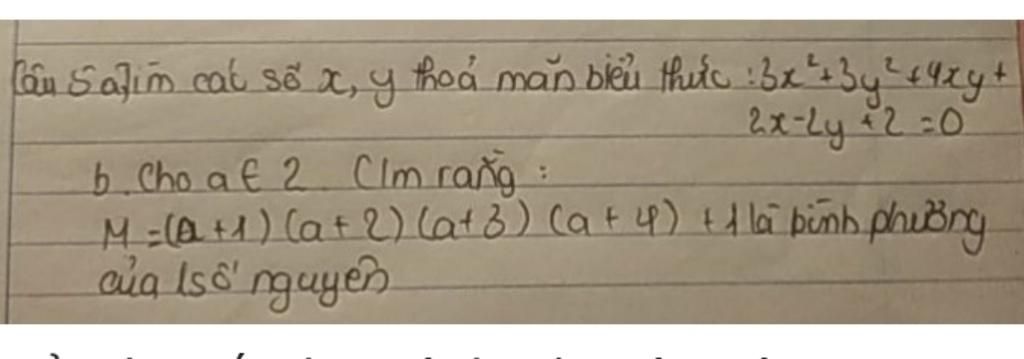 Câu 5 a) Tìm các số x, y thoả mãn biểu thức : 3x² + 3y² + 4xy +
2x - 2y + 2 = 0
b. Cho a ∈ Z C/m rằng :
M = (a + 1) (a + 2) (a + 3) (a + 4) + 1 là bình phương
của 1 số nguyên